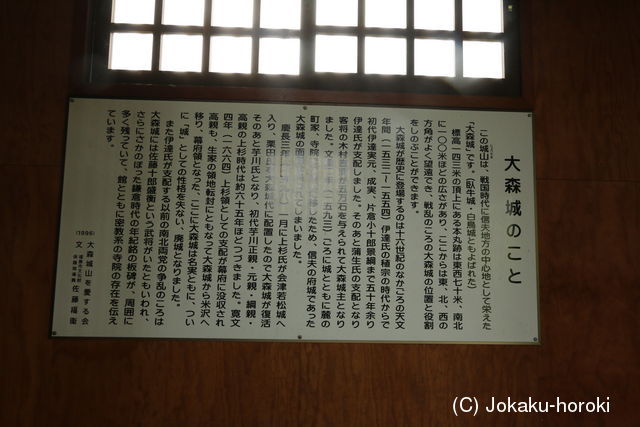 大森城のこと
この城山は、戦国時代に信夫地方の中心地として栄えた
「大森城」です。（臥牛城、白鳥城ともよばれた）
標高一四三米の頂上にある本丸跡は東西七十米、南北
に一〇〇米ほどの広さがあり、ここからは東、北、西の
方角がよく望遠でき、戦乱のころの大森城の位置と役割
をしのぶことができます。
大森城が歴史に登場するのは十六世紀のなかごろの天文
年間（一五三二～一五五四）伊達氏の稙宗の時代からで
初代伊達実元、成実、片倉小十郎景綱まで五十年余り
伊達氏が支配しました。そのあと蒲生氏の支配となり
客将の木村 五万石を与えられて大森城主となり
ました。文 （一五九三）ころに城とともに麓の
町家、寺院 移したため、信夫の府城であった
大森城の面 てしまいました。
慶長三年 一月に上杉氏が会津若松城へ
入り、栗田 大森城代に配置したので大森城が復活
そのあと芋川氏となり、初代芋川正親・元親・綱親・
高親の上杉時代は約六十五年ほどつづきました。寛文
四年（一六六四）上杉領としての支配が幕府に没収され
高親も、生家の領地転封にともなって大森城から米沢へ
移り、幕府領となった、ここに大森城は名実ともに、つい
に「城」としての性格を失ない、廃城となりました。
また伊達氏が支配する以前の南北両党の争乱のころは
大森城には佐藤十郎盛衡という武将がいたともいわれ、
さらにさかのぼった鎌倉時代の年紀銘の板碑が、周囲に
多く残っていて、館とともに密教系の寺院の存在を伝え
ています。
(1995) 大森城山を愛する会
文 佐藤福衛
(C) Jokaku-horoki